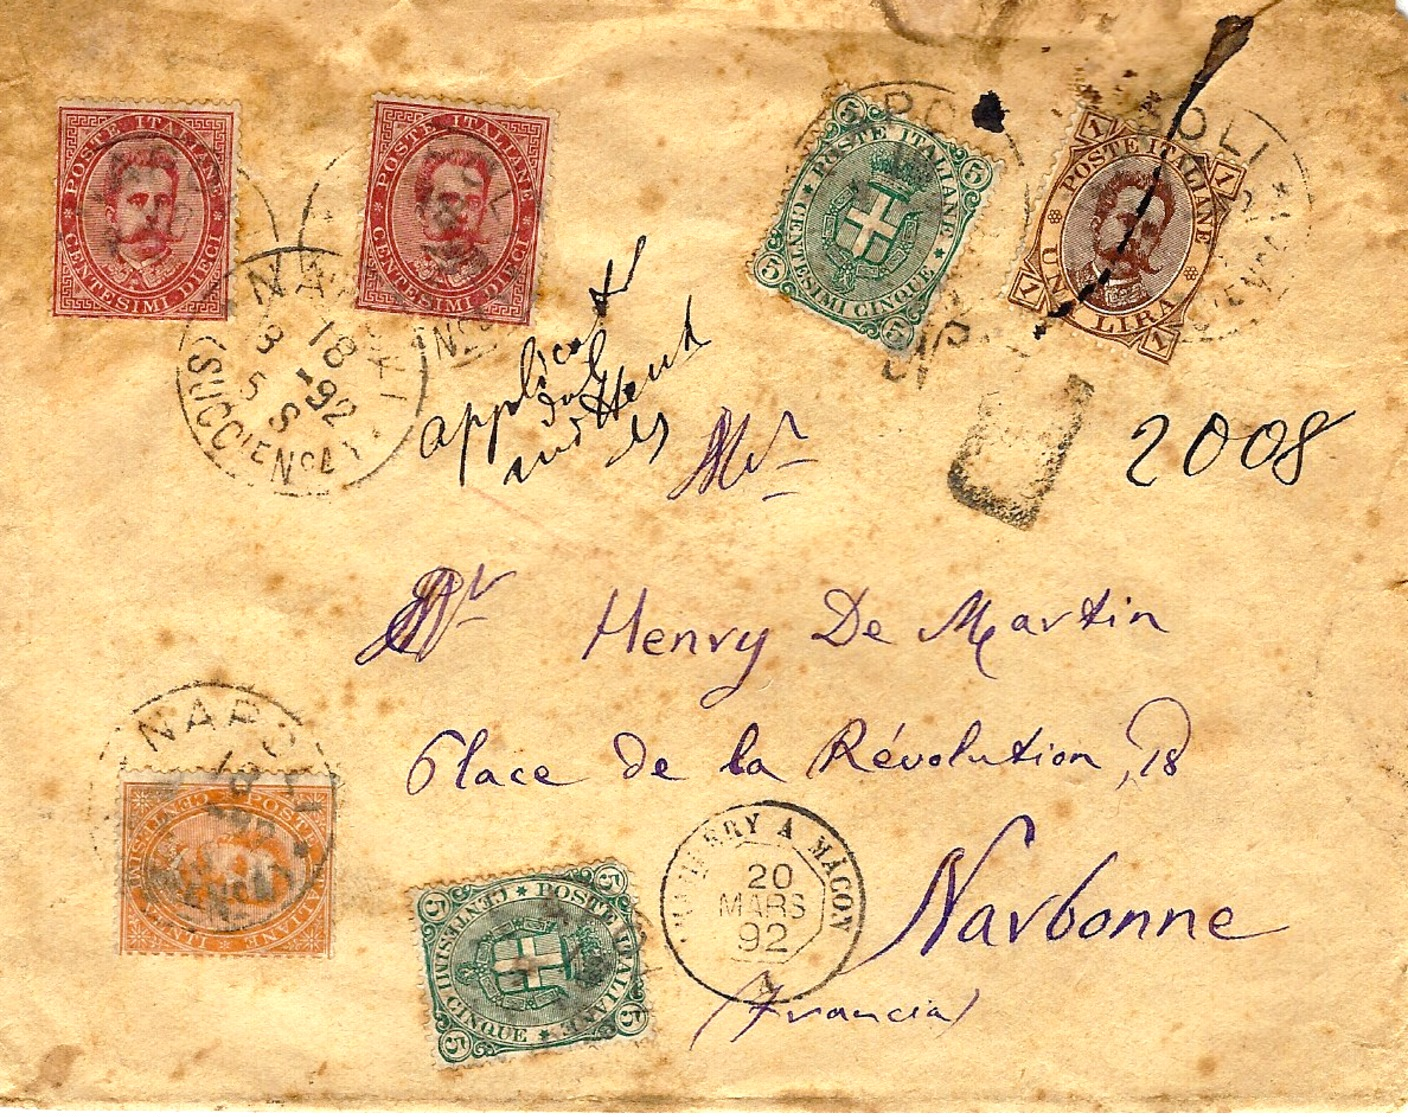 POSTE ITALIANE
CENTESIMI DIECI
POSTE ITALIANE
CENTESIMI DIECI
5 5
POSTE ITALIANE
CENTESIMI CINQUE
5 5
1 1
POSTE ITALIANE
UNA LIRA
1 1
NAPOLI
18
3
'92
5 S
(SUCCLE No 4)
applicati
dal
mittent
es
Mr
2008
Mr Henry De Martin
Place de la Révolution, 18
Narbonne
(Francia)
NAPOLI
POSTE ITALIANE
CENTESIMI
5 5
POSTE ITALIANE
CENTESIMI CINQUE
5 5
A MÂCON
20
MARS
92